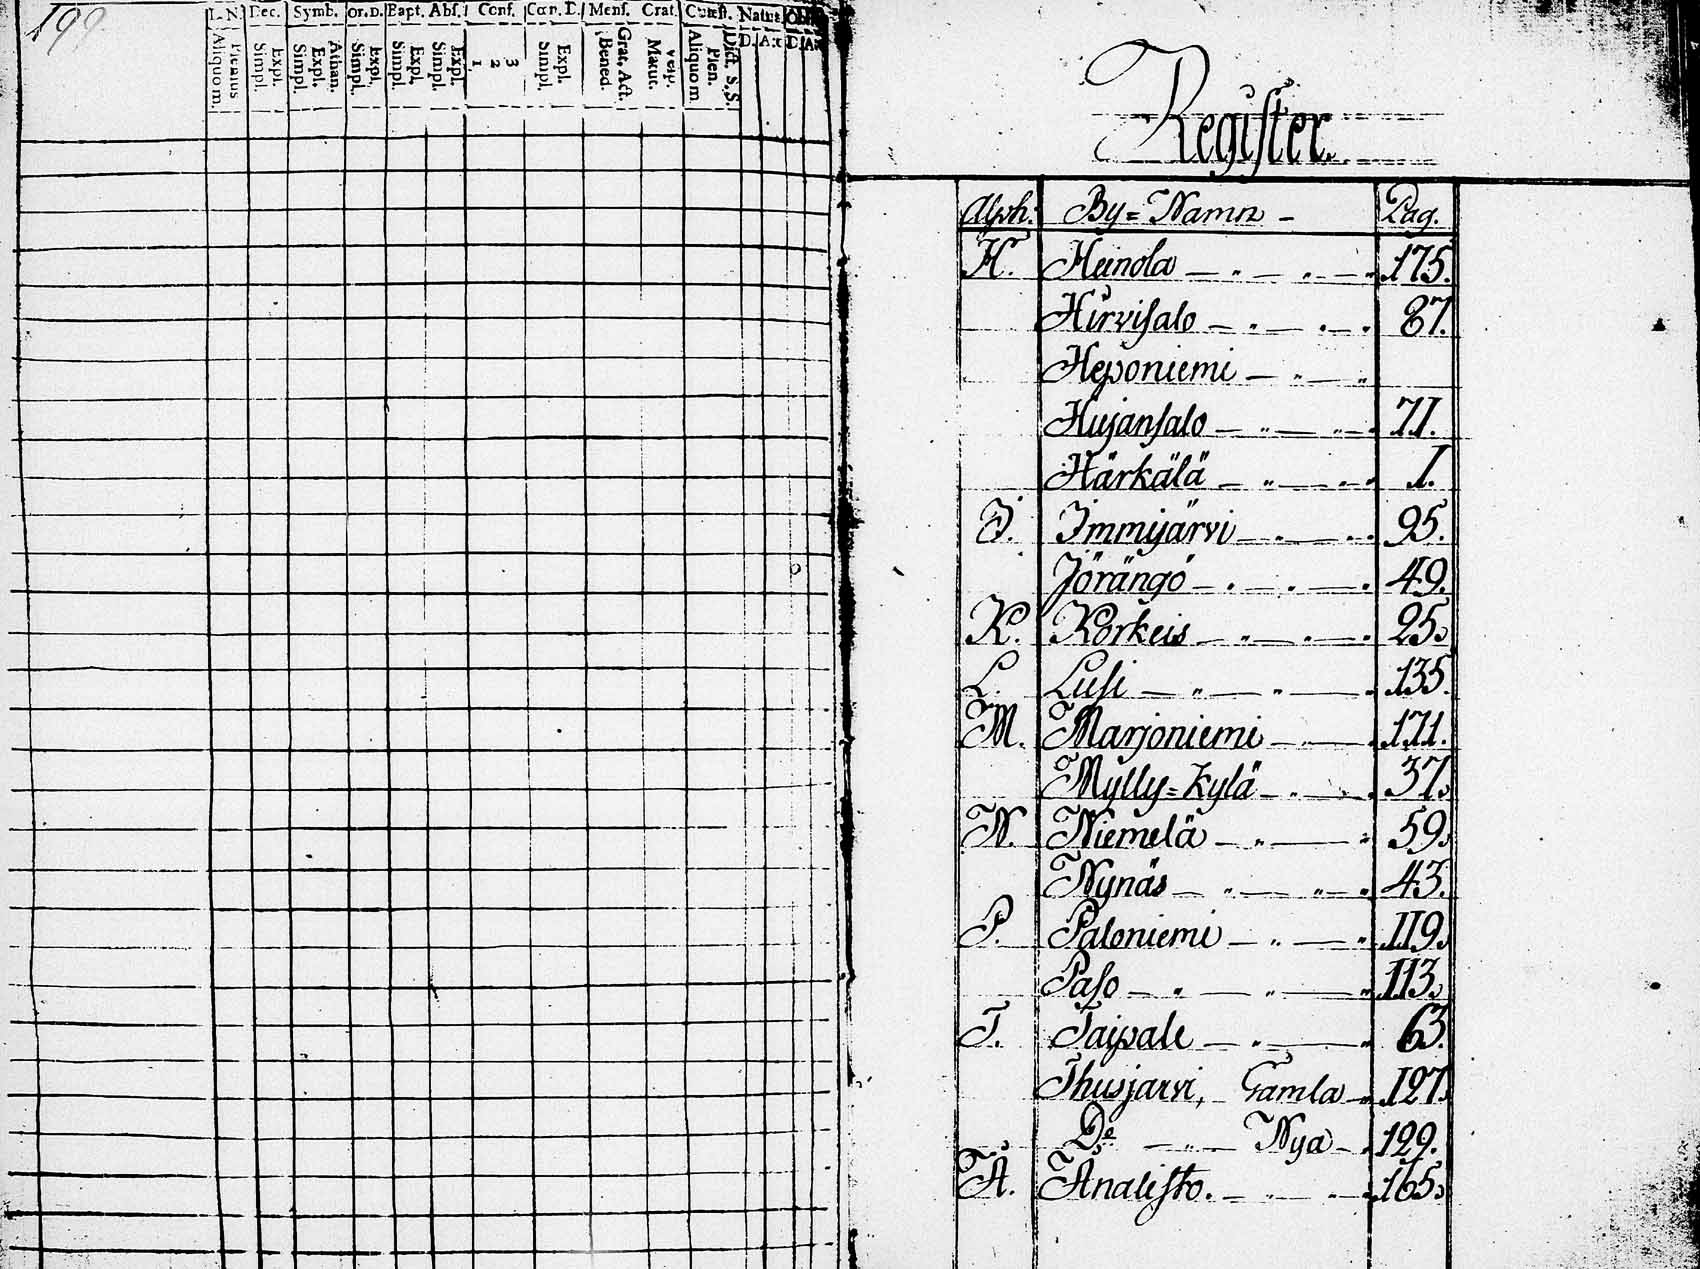 199
L.N. Dec. Symb. Or.D. Bapt. Abs. Conf. Cœn. D. Mens. Grat. Quæst. Natus.
D. A:o D. A:o
Aliquom. Plenius Simpl. Expl. Simpl. Expl. Athan. Simpl. Expl. Simpl. Expl. Simpl. Expl. 1 2 3 Simpl. Expl. Bened. Grat. Act. Matut. Vesp. Aliquom. Plen. Dict. S.S.
Register.
Alph: By=Namn - Pag.
H. Heinola 175.
Hirvisalo 87.
Heponiemi
Hujansalo 71.
Härkälä 1.
J. Immijärvi 95.
Jörängö 49.
K. Korkeis 25.
L. Lusi 135.
M. Marjoniemi 171.
Mylly=Kylä 37.
N. Niemelä 59.
Nynäs 43.
P. Paloniemi 119.
Paso 113.
T. Taipale 63.
Thusjarvi, Gamla 127.
Do Nya 129.
Ä. Änalisto. 165.